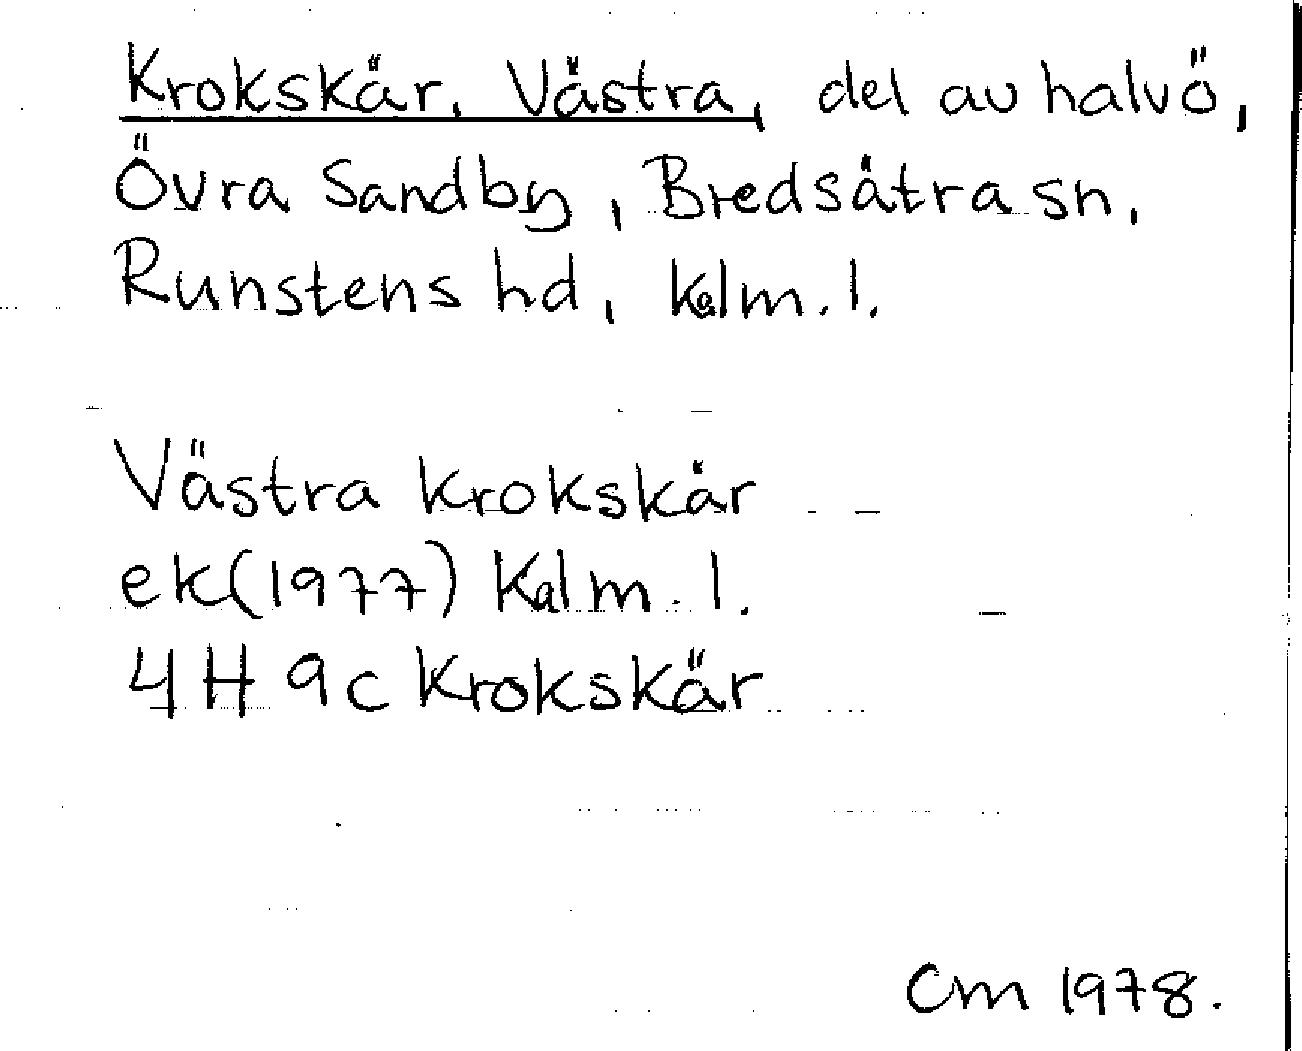 Krokskär, Västra, del av halvö,
Övra Sandby, Bredsätra sn,
Runstens hd, Kalm. l.
Västra Krokskär
ek(1977) Kalm. l.
4H 9c Krokskär
Cm 1978.